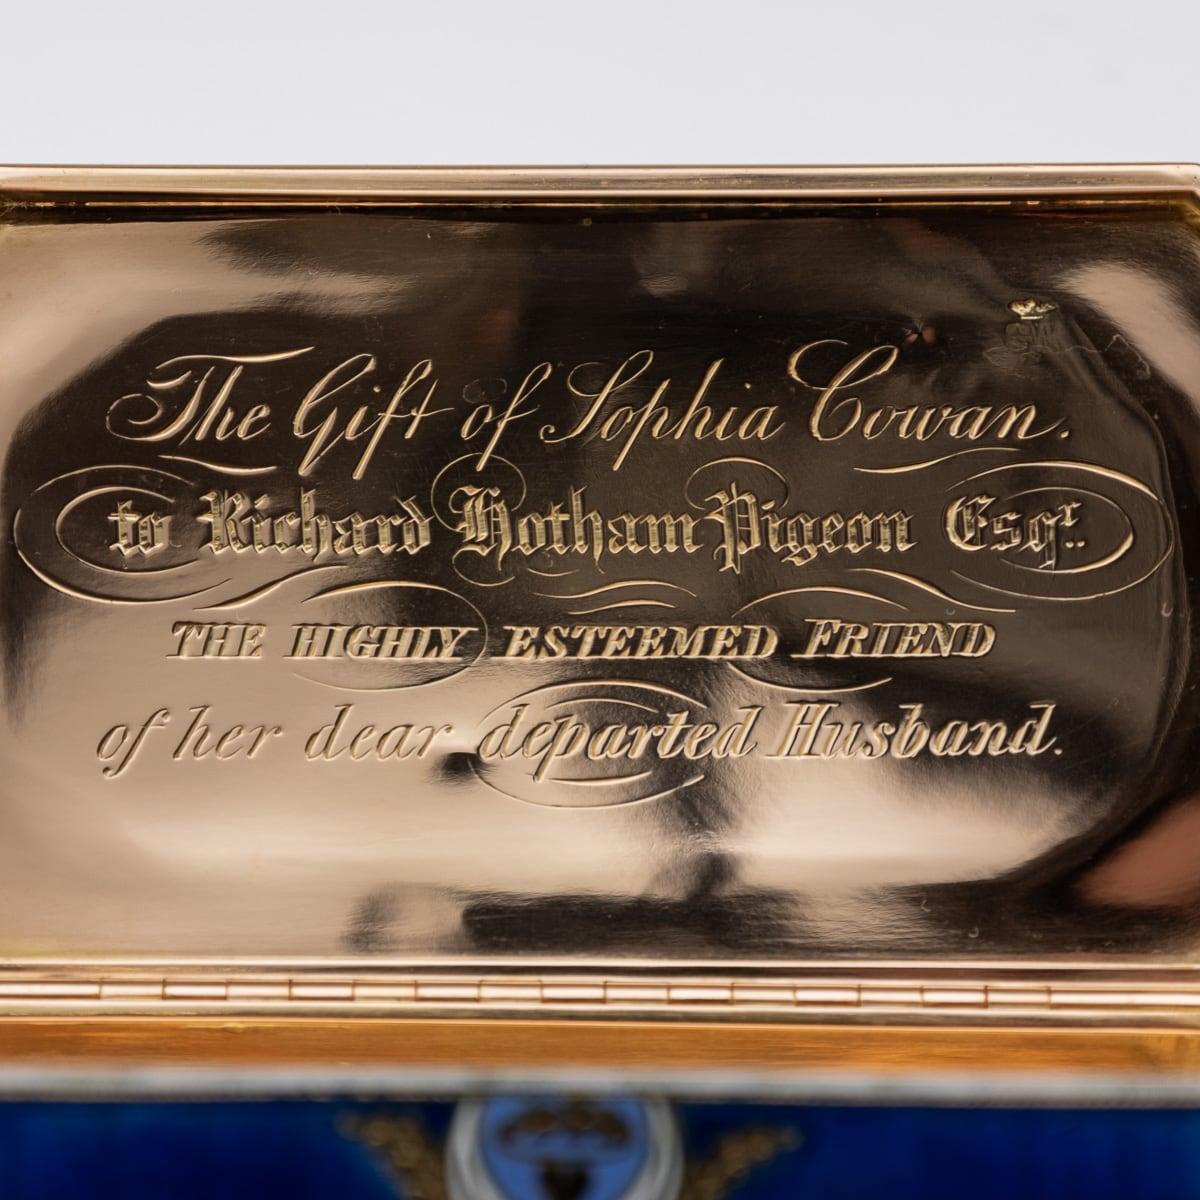 The Gift of Sophia Cowan.
to Richard Hotham Pigeon Esqr..
THE HIGHLY ESTEEMED FRIEND
of her dear departed Husband.